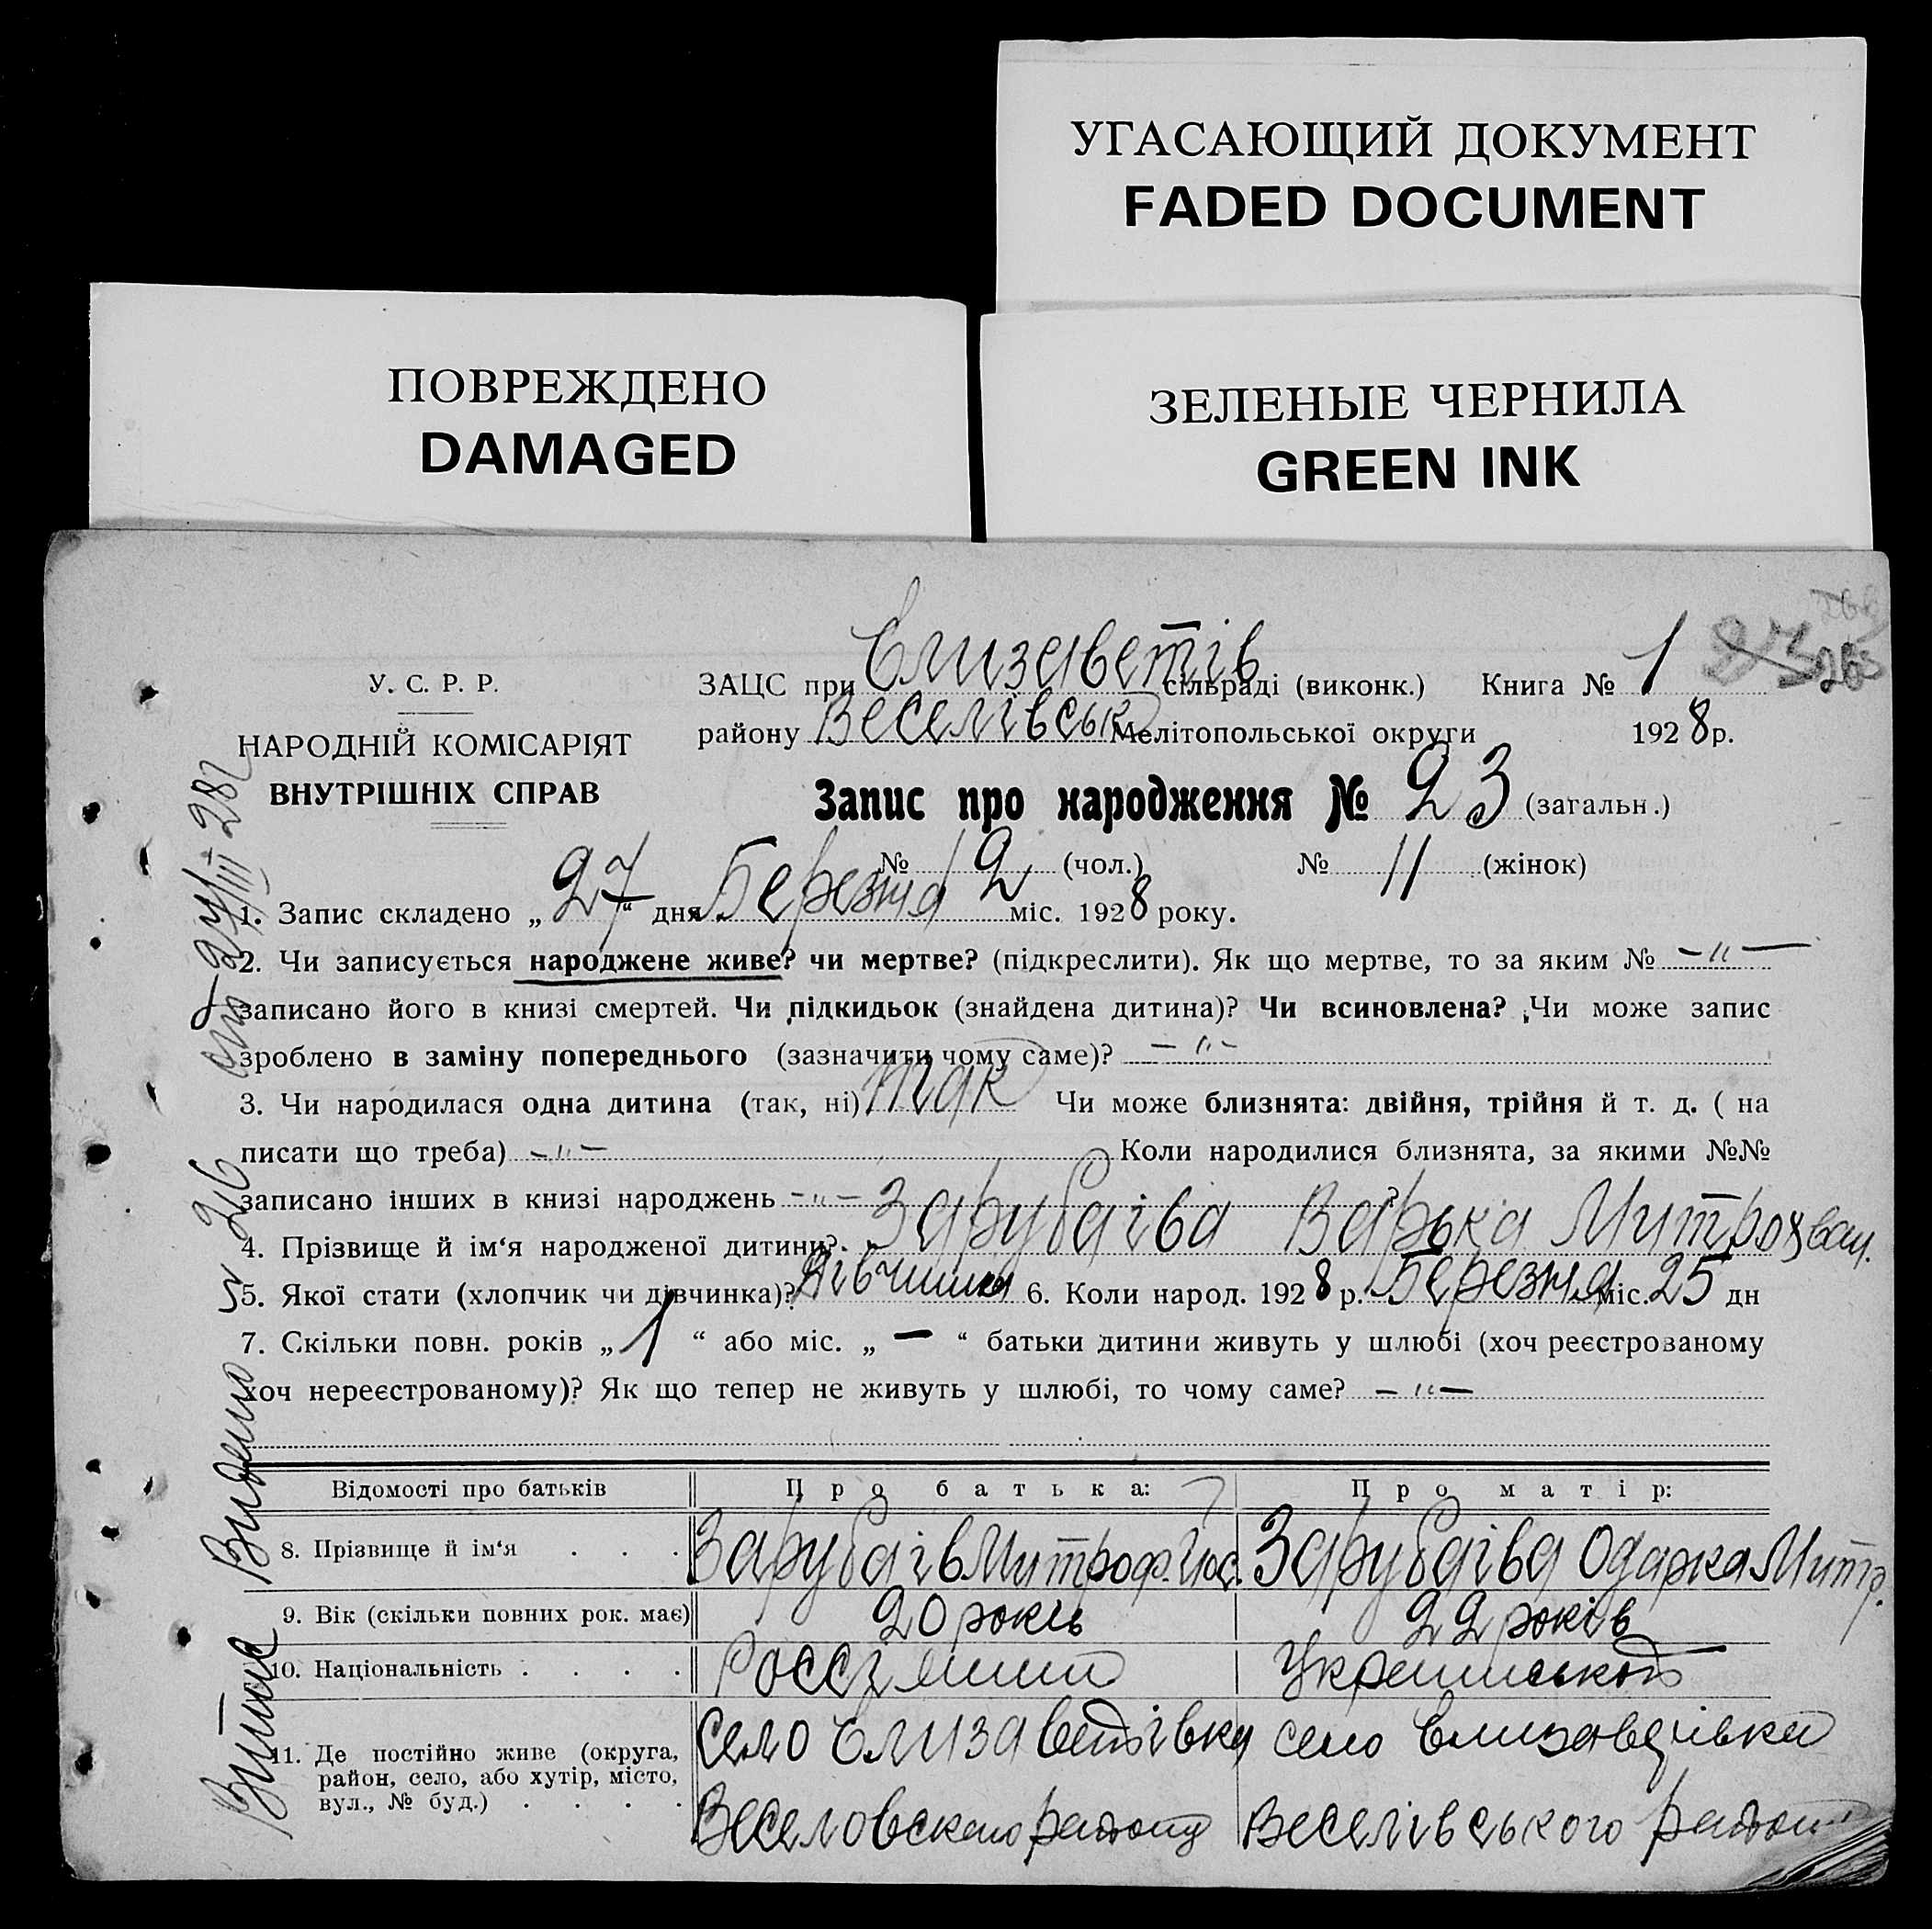 УГАСАЮЩИЙ ДОКУМЕНТ
FADED DOCUMENT
ПОВРЕЖДЕНО
DAMAGED
ЗЕЛЕНЫЕ ЧЕРНИЛА
GREEN INK
У. С. Р. Р.
НАРОДНІЙ КОМІСАРІЯТ
ВНУТРІШНІХ СПРАВ
ЗАЦС при Єлизаветів сільраді (виконк.) Книга № 1
району Веселівськ Мелітопольської округи 1928 р.
Запис про народження № 23 (загальн.)
№ 12 (чол.) № 11 (жінок)
1. Запис складено „27“ дня Березня міс. 1928 року.
2. Чи записується народжене живе? чи мертве? (підкреслити). Як що мертве, то за яким № -"-
записано його в книзі смертей. Чи підкидьок (знайдена дитина)? Чи всиновлена? Чи може запис
зроблено в заміну попереднього (зазначити чому саме)? -"-
3. Чи народилася одна дитина (так, ні) так Чи може близнята: двійня, трійня й т. д. ( на
писати що треба) -"- Коли народилися близнята, за якими №№
записано інших в книзі народжень -"-
4. Прізвище й ім‘я народженої дитини? Зарубаіва Варька Митрохван.
5. Якої стати (хлопчик чи дівчинка)? Дівчинка 6. Коли народ. 1928 р. Березня міс. 25 дн
7. Скільки повн. років „1“ або міс. „—“ батьки дитини живуть у шлюбі (хоч реєстрованому
хоч нереєстрованому)? Як що тепер не живуть у шлюбі, то чому саме? -"-
Відомості про батьків Про батька: Про матір:
8. Прізвище й ім‘я . . . Зарубаів Митроф. Зарубаіва Одарка Митр.
9. Вік (скільки повних рок. має) 20 років 22 років
10. Національність . . . .
11. Де постійно живе (округа, район, село, або хутір, місто, вул., № буд.) . . . . село Елизаветівка село Елизаветівка
Веселовского району Веселівського району